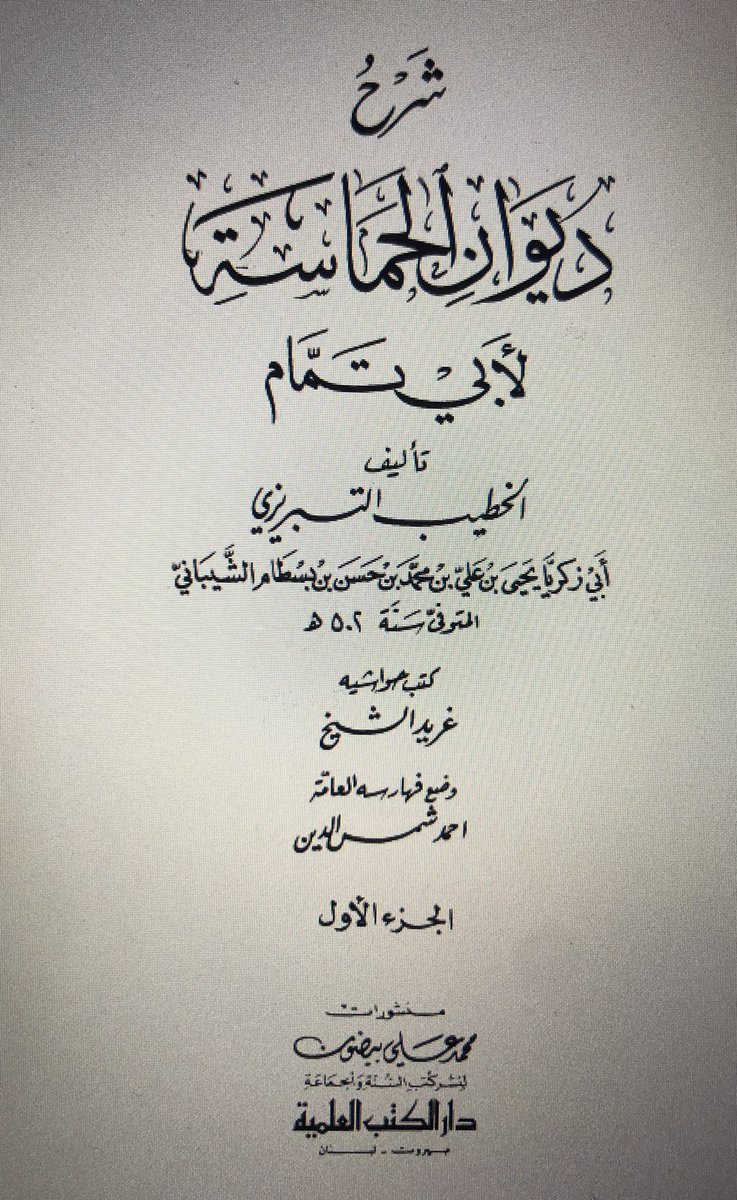 شَرْحُ
دِيوَانِ الْحَمَاسَةِ
لأَبِي تَمَّام
تأليف
الخطيب التبريزي
أبي زكريّا يحيى بن عليّ بن محمّد بن حسن بن بسطام الشَّيبانيّ
المتوفّى سَنَة ٥٠٢ ھ
كتب حواشيه
غريد الشيخ
وضع فهارسه العامّة
احمد شمس الدين
الجزء الأول
منشورات
محمد علي بيضون
لنشر كتب السنة والجماعة
دار الكتب العلمية
بيروت - لبنان